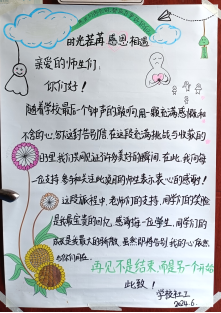 时光荏苒 感恩相遇
亲爱的师生们:
你们好!
随着学校最后一个钟声的敲响,用一颗充满感激和
不舍的心,写下这封告别信。在这段充满挑战与收获的
日子里,我们共同见证了许多美好的瞬间。在此,我向每
一位支持、参与和关注此项目的师生表示衷心的感谢!
这段旅程中,老师们的支持、同学们的笑脸
是我最宝贵的回忆,感谢每一位学生,同学们的
成长是我最大的骄傲。虽然即将告别,我的心依然
与你们同在。
再见不是结束,而是另一个开始
此致!
学校社工
2024.6